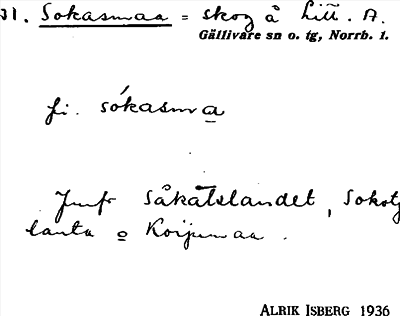 31. Sokasmaa = skog å Litt. A.
Gällivare sn o. tg, Norrb. l.
fi. sókasmа
Jmfr Såkåtslandet, Sokotj
lanta o Koijumaa.
ALRIK ISBERG 1936